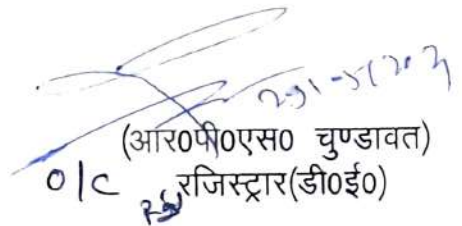 (आर0पी0एस0 चुण्डावत)
O/C रजिस्ट्रार(डी0ई0)